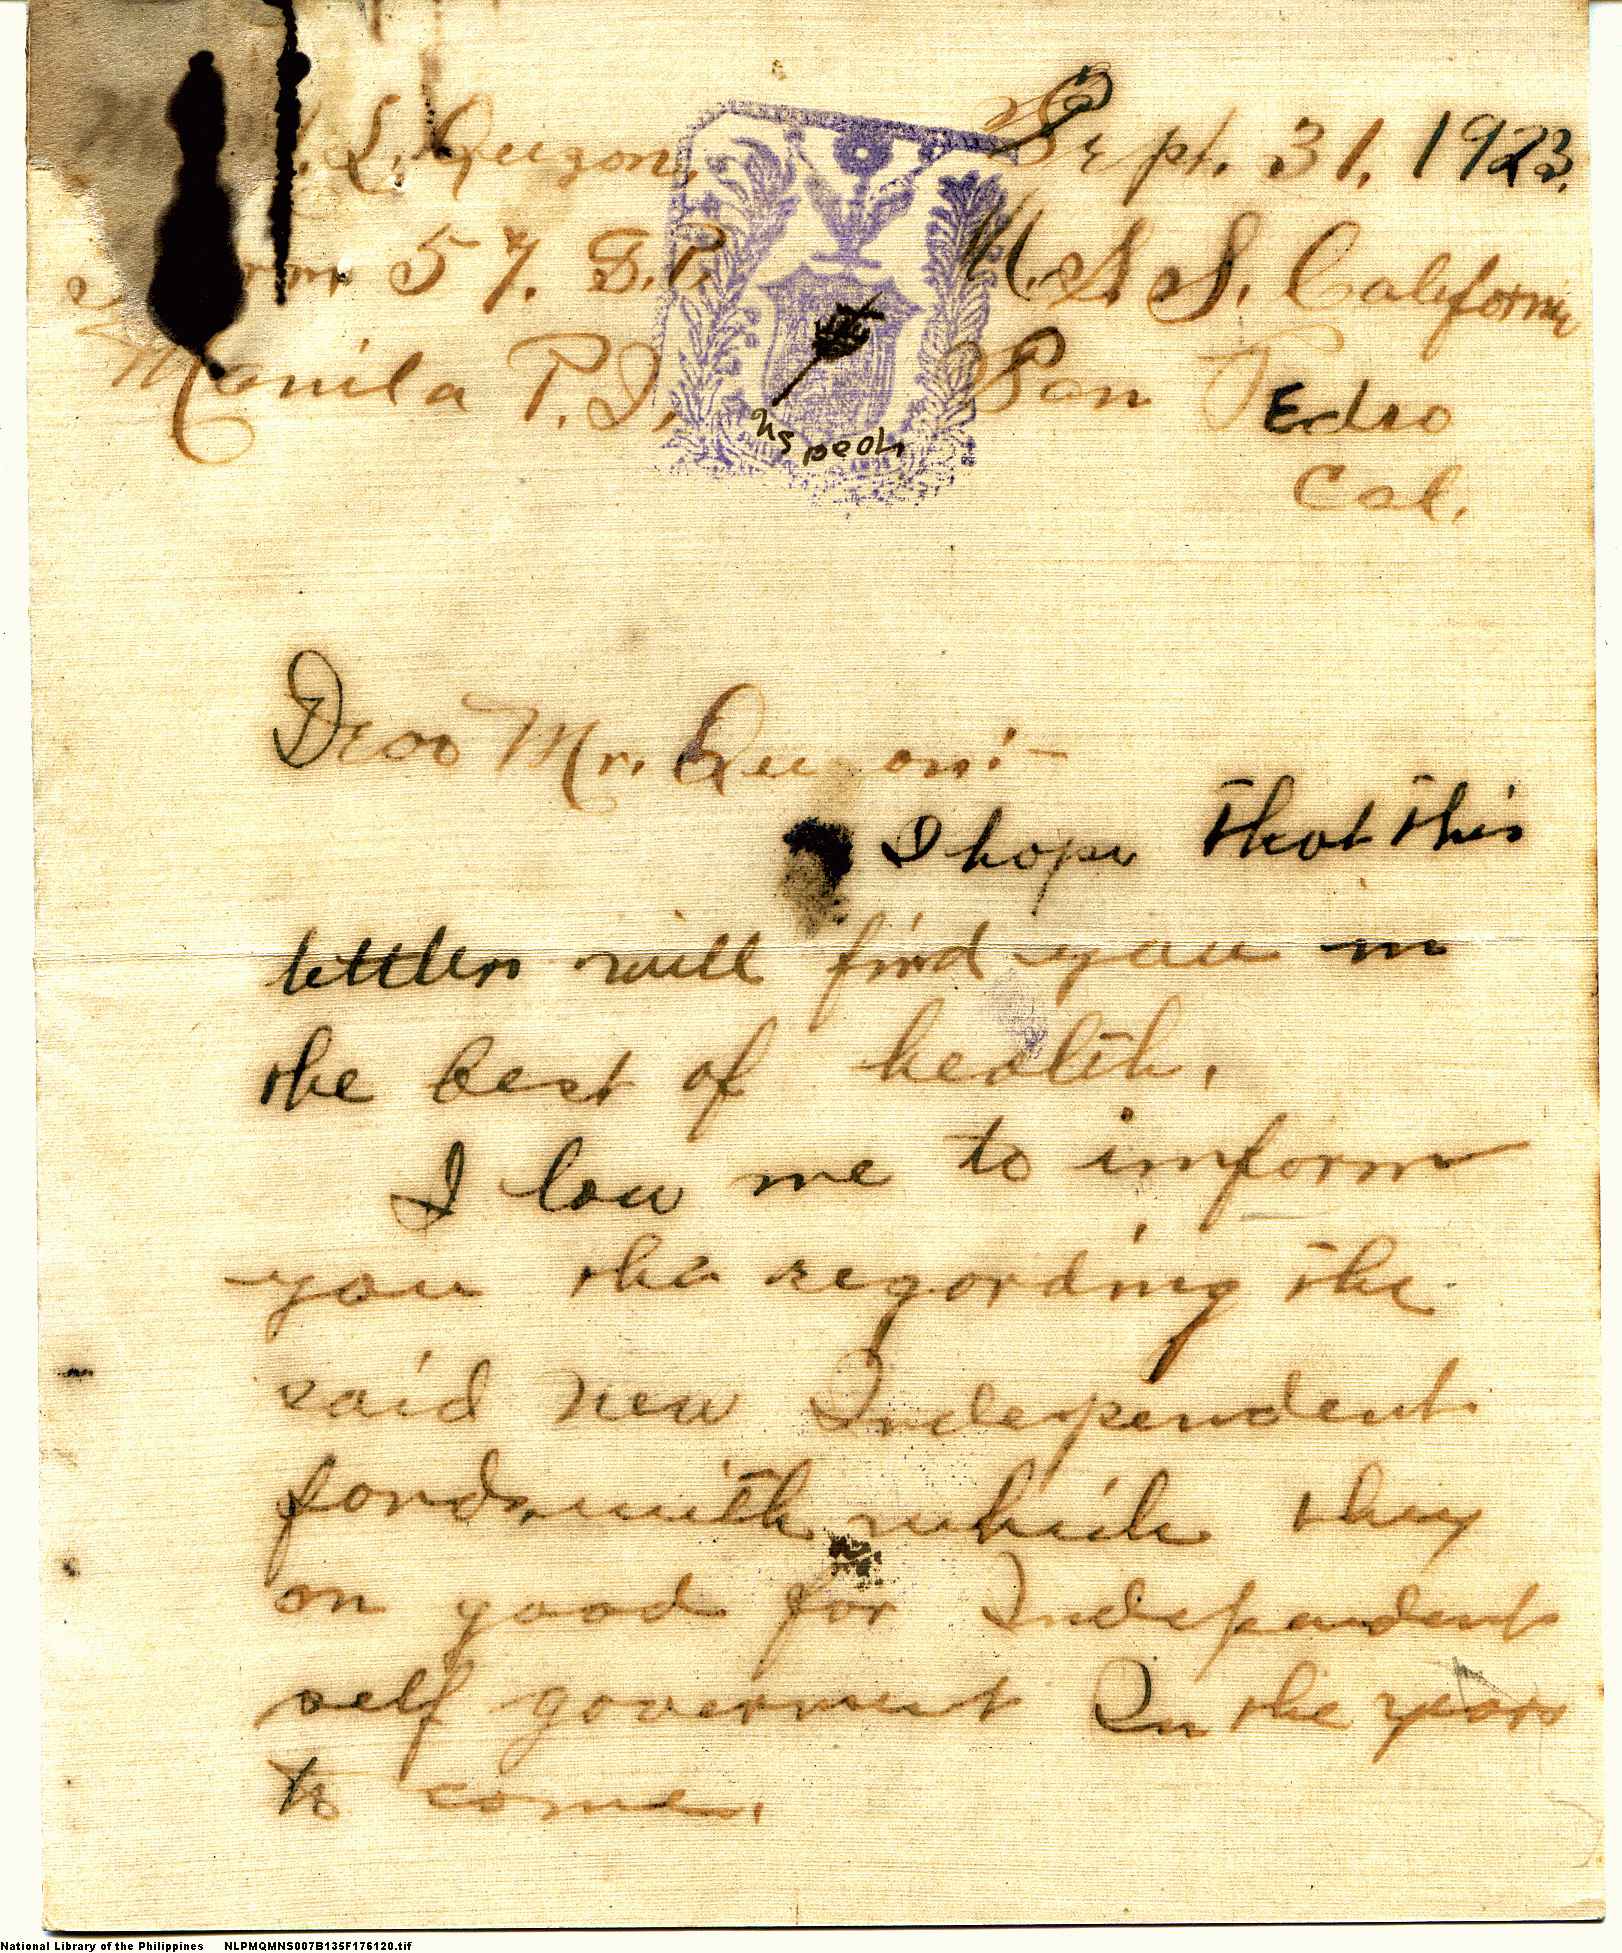 L. Quezon, Sept. 31, 1923.
57. B.P. U.S.S. California
Manila P.I. San Pedro
Cal.
Dear Mr. Quezon:-
I hope that this
letter will find you in
the best of health.
I low me to inform
you tha regarding the
said new Independent
fonds, with which they
on good for Independent
self goverment In the years
to come.
National Library of the Philippines NLPMQMNS007B135F176120.tif